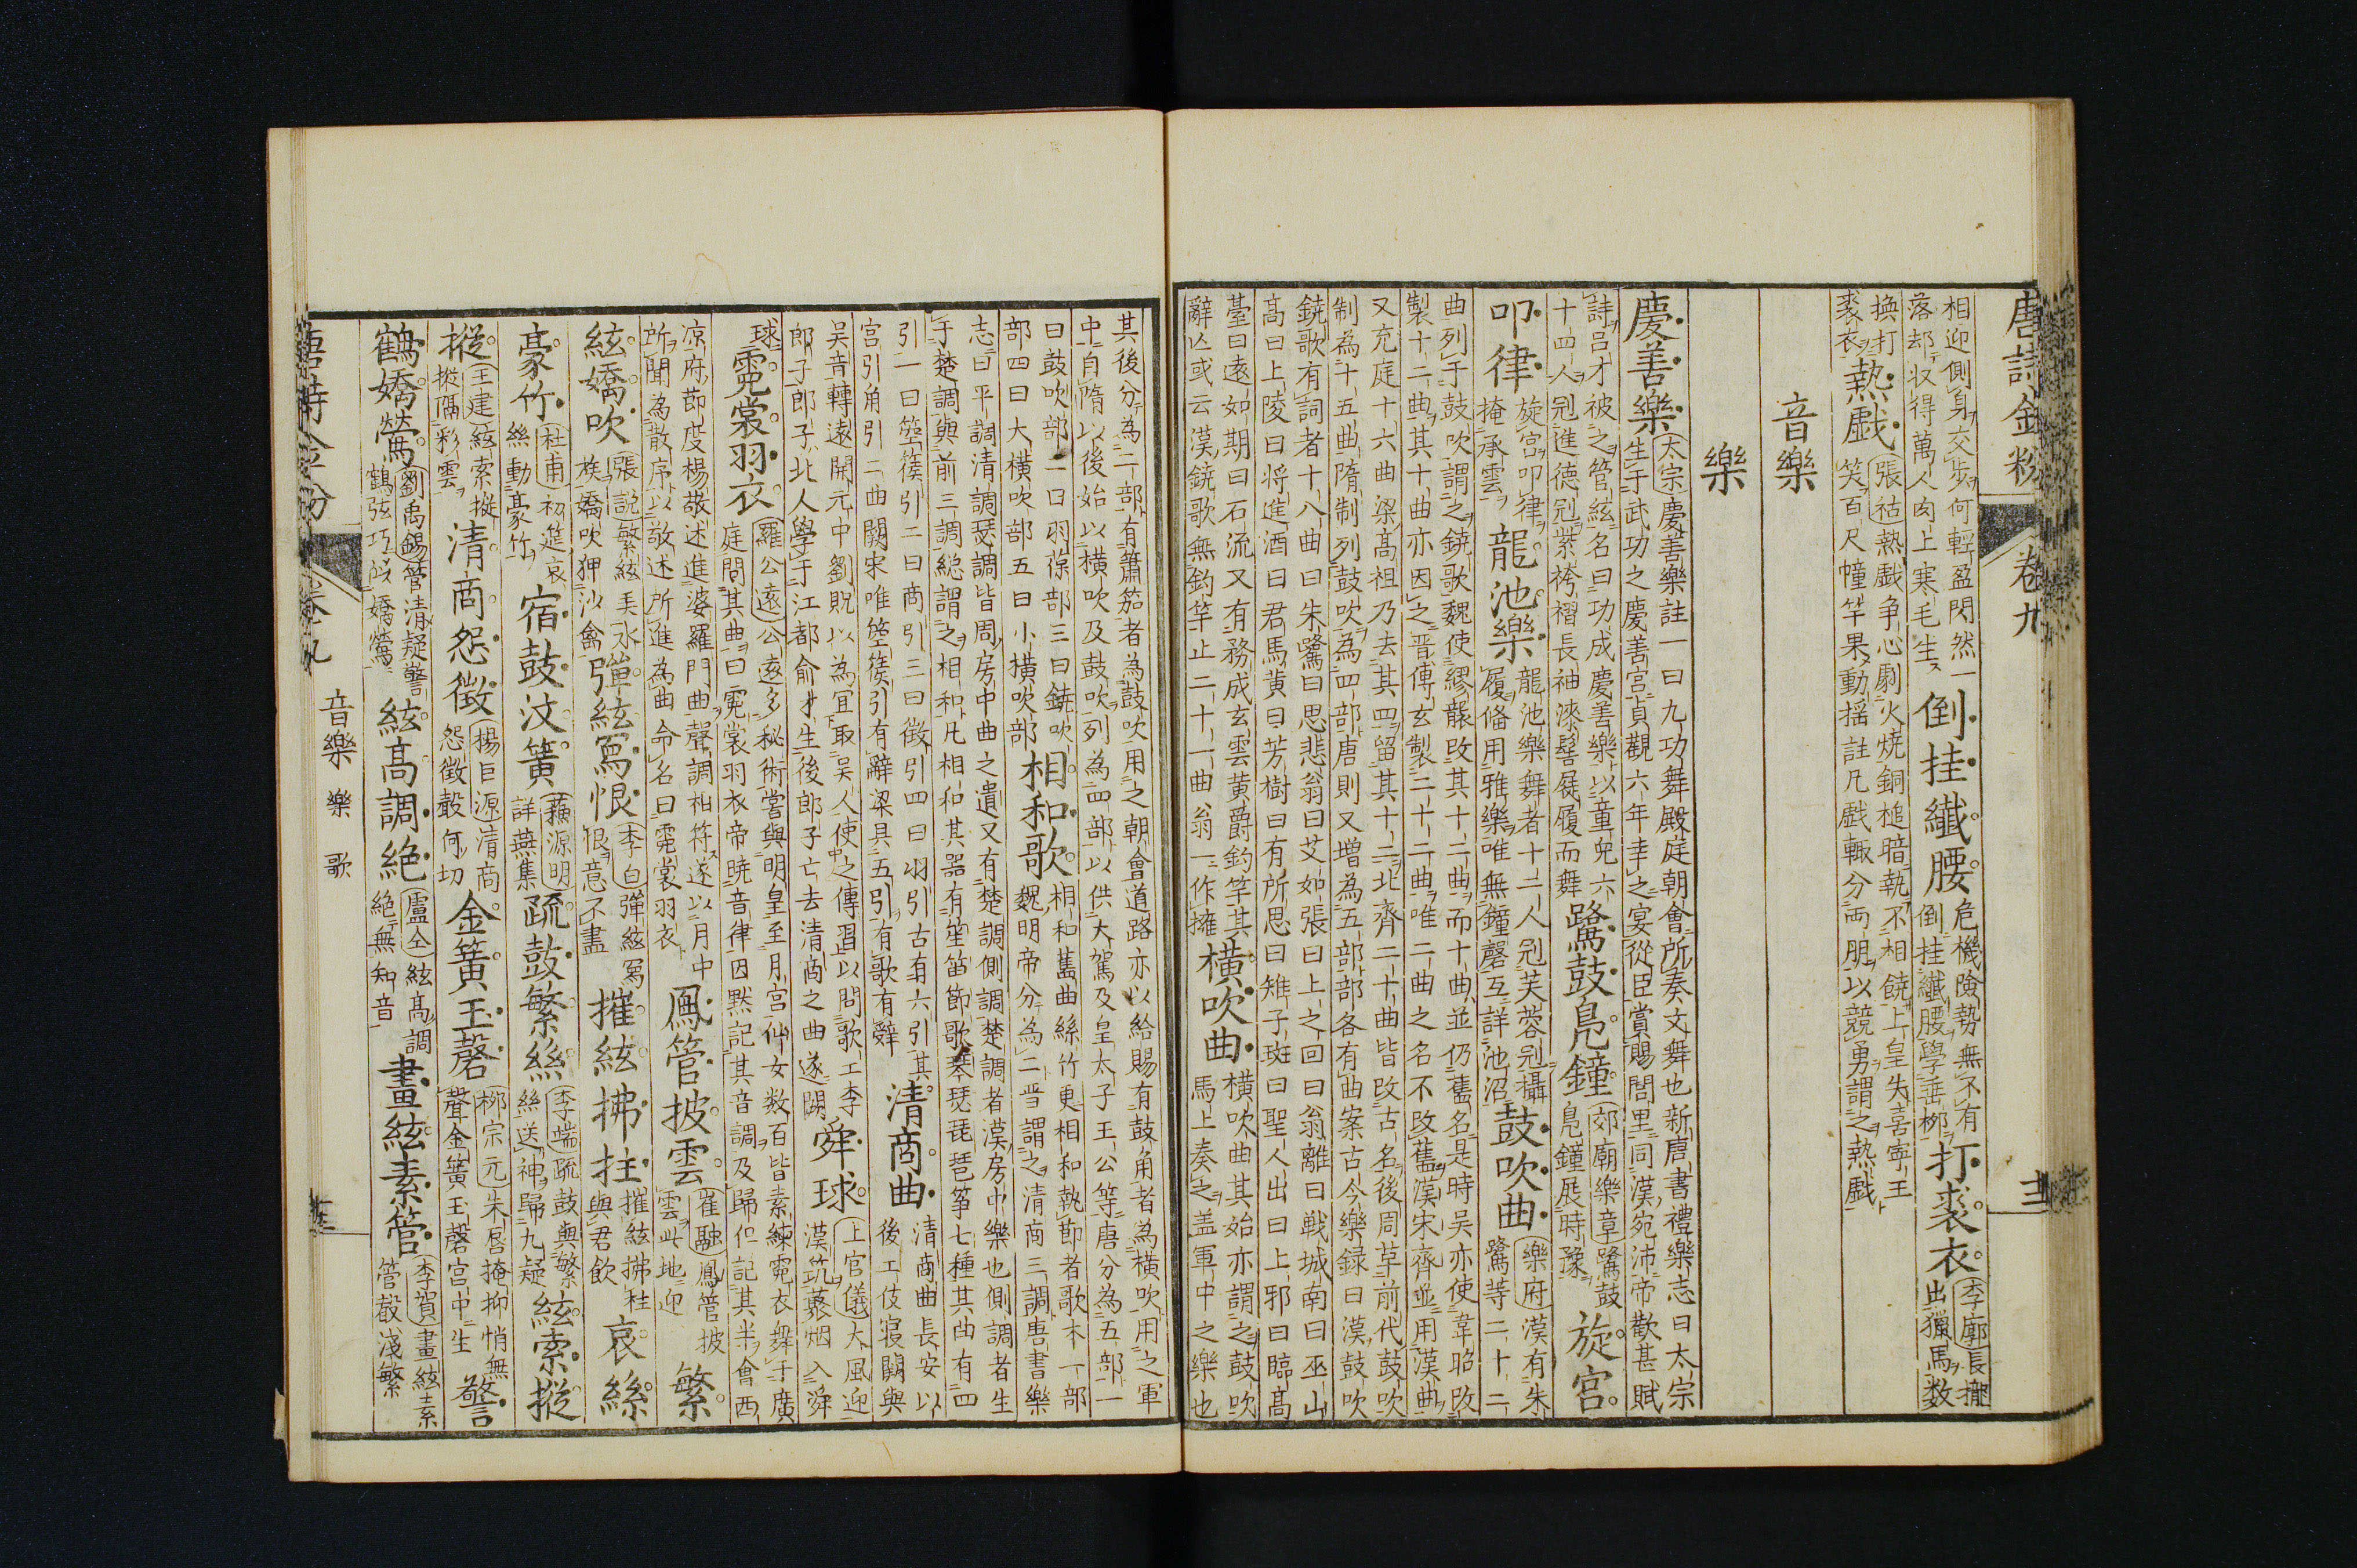 唐詩金粉 卷九
相迎側身交歩何輕盈閃然一
落却収得萬人肉上寒毛生
倒挂纖腰
危機險勢無不有
倒挂纖腰學垂栁
打裘衣
李廓長攏
出獵馬数
換打
裘衣
熱戲
張祜熱戲争心劇火燒銅槌暗執不相饒上皇失喜寧王
笑百尺幢竿果動揺註凡戲輙分両朋以競勇謂之熱戲
音樂
樂
慶善樂
太宗慶善樂註一曰九功舞殿庭朝會所奏文舞也新唐書禮樂志曰太宗
生于武功之慶善宮貞觀六年幸之宴從臣賞賜閭里同漢宛沛帝歡甚賦
詩吕才被之管絃名曰功成慶善樂以童兒六
十四人冠進德冠紫袴褶長袖漆髻屣履而舞
鷺鼓鳬鐘
郊廟樂章鷺鼓
鳬鐘展時豫
旋宮
叩律
旋宮叩律
掩承雲
龍池樂
龍池樂舞者十二人冠芙蓉冠攝
履偹用雅樂唯無鐘磬互詳池沼
鼓吹曲
樂府漢有朱
鷺等二十二
曲列于鼓吹謂之鐃歌魏使繆襲改其十二曲而十曲並仍舊名是時吴亦使韋昭改
製十二曲其十曲亦因之晋傅玄製二十二曲唯二曲之名不改舊漢宋齊並用漢曲
又充庭十六曲梁髙祖乃去其四留其十二北齊二十曲皆改古名後周革前代鼓吹
制為十五曲隋制列鼓吹為四部唐則又增為五部部各有曲案古今樂録曰漢鼓吹
鐃歌有詞者十八曲曰朱鷺曰思悲翁曰艾如張曰上之回曰翁離曰戦城南曰巫山
髙曰上陵曰将進酒曰君馬黄曰芳樹曰有所思曰雉子斑曰聖人出曰上邪曰臨髙
臺曰遠如期曰石流又有務成玄雲黄爵釣竿其
辭亾或云漢鐃歌無釣竿止二十一曲翁一作擁
横吹曲
横吹曲其始亦謂之鼓吹
馬上奏之盖軍中之樂也
其後分為二部有簫笳者為鼓吹用之朝會道路亦以給賜有鼓角者為横吹用之軍
中自隋以後始以横吹及鼓吹列為四部以供大駕及皇太子王公等唐分為五部一
曰鼓吹部二曰羽葆部三曰鐃吹
部四曰大横吹部五曰小横吹部
相和歌
相和舊曲絲竹更相和執節者歌本一部
魏明帝分為二晋謂之清商三調唐書樂
志曰平調清調瑟調皆周房中曲之遺又有楚調側調楚調者漢房中樂也側調者生
于楚調與前三調総謂之相和凡相和其器有笙笛節歌琴瑟琵琶筝七種其曲有四
引一曰箜篌引二曰商引三曰徵引四曰羽引古有六引其
宮引角引二曲闕宋唯箜篌引有辭梁具五引有歌有辭
清商曲
清商曲長安以
後工伎寝闕與
吴音轉遠開元中劉貺以為宜取吴人使之傳習以問歌工李
郎子郎子北人學于江都俞才生後郎子亡去清商之曲遂闕
舜球
上官儀大風迎
漢筑叢烟入舜
球
霓裳羽衣
羅公遠公遠多秘術嘗與明皇至月宮仙女数百皆素練霓衣舞于廣
庭問其曲曰霓裳羽衣帝暁音律因黙記其音調及歸但記其半會西
凉府節度楊敬述進婆羅門曲聲調相符遂以月中
所聞為散序以敬述所進為曲命名曰霓裳羽衣
鳳管披雲
崔融鳳管披
雲此地迎
繁
絃嬌吹
張說繁絃弄水
族嬌吹狎沙禽
彈絃寫恨
李白彈絃寫
恨意不盡
摧絃拂柱
摧絃拂柱
與君飲
哀絲
豪竹
杜甫初筵哀
絲動豪竹
宿鼓汶簧
蘓源明
詳燕集
疏鼓繁絲
李端疏鼓與繁
絲送神歸九疑
絃索摐
摐
王建絃索摐
摐隔彩雲
清商怨徵
楊巨源清商
怨徵聲何切
金簧玉磬
柳宗元朱唇掩抑悄無
聲金簧玉磬宮中生
警
鶴嬌鶯
劉禹錫管清疑警
鶴弦巧似嬌鶯
絃髙調絶
盧仝絃髙調
絶無知音
畫絃素管
李賀畫絃素
管聲淺繁
唐詩金粉 卷九 音樂 樂 歌